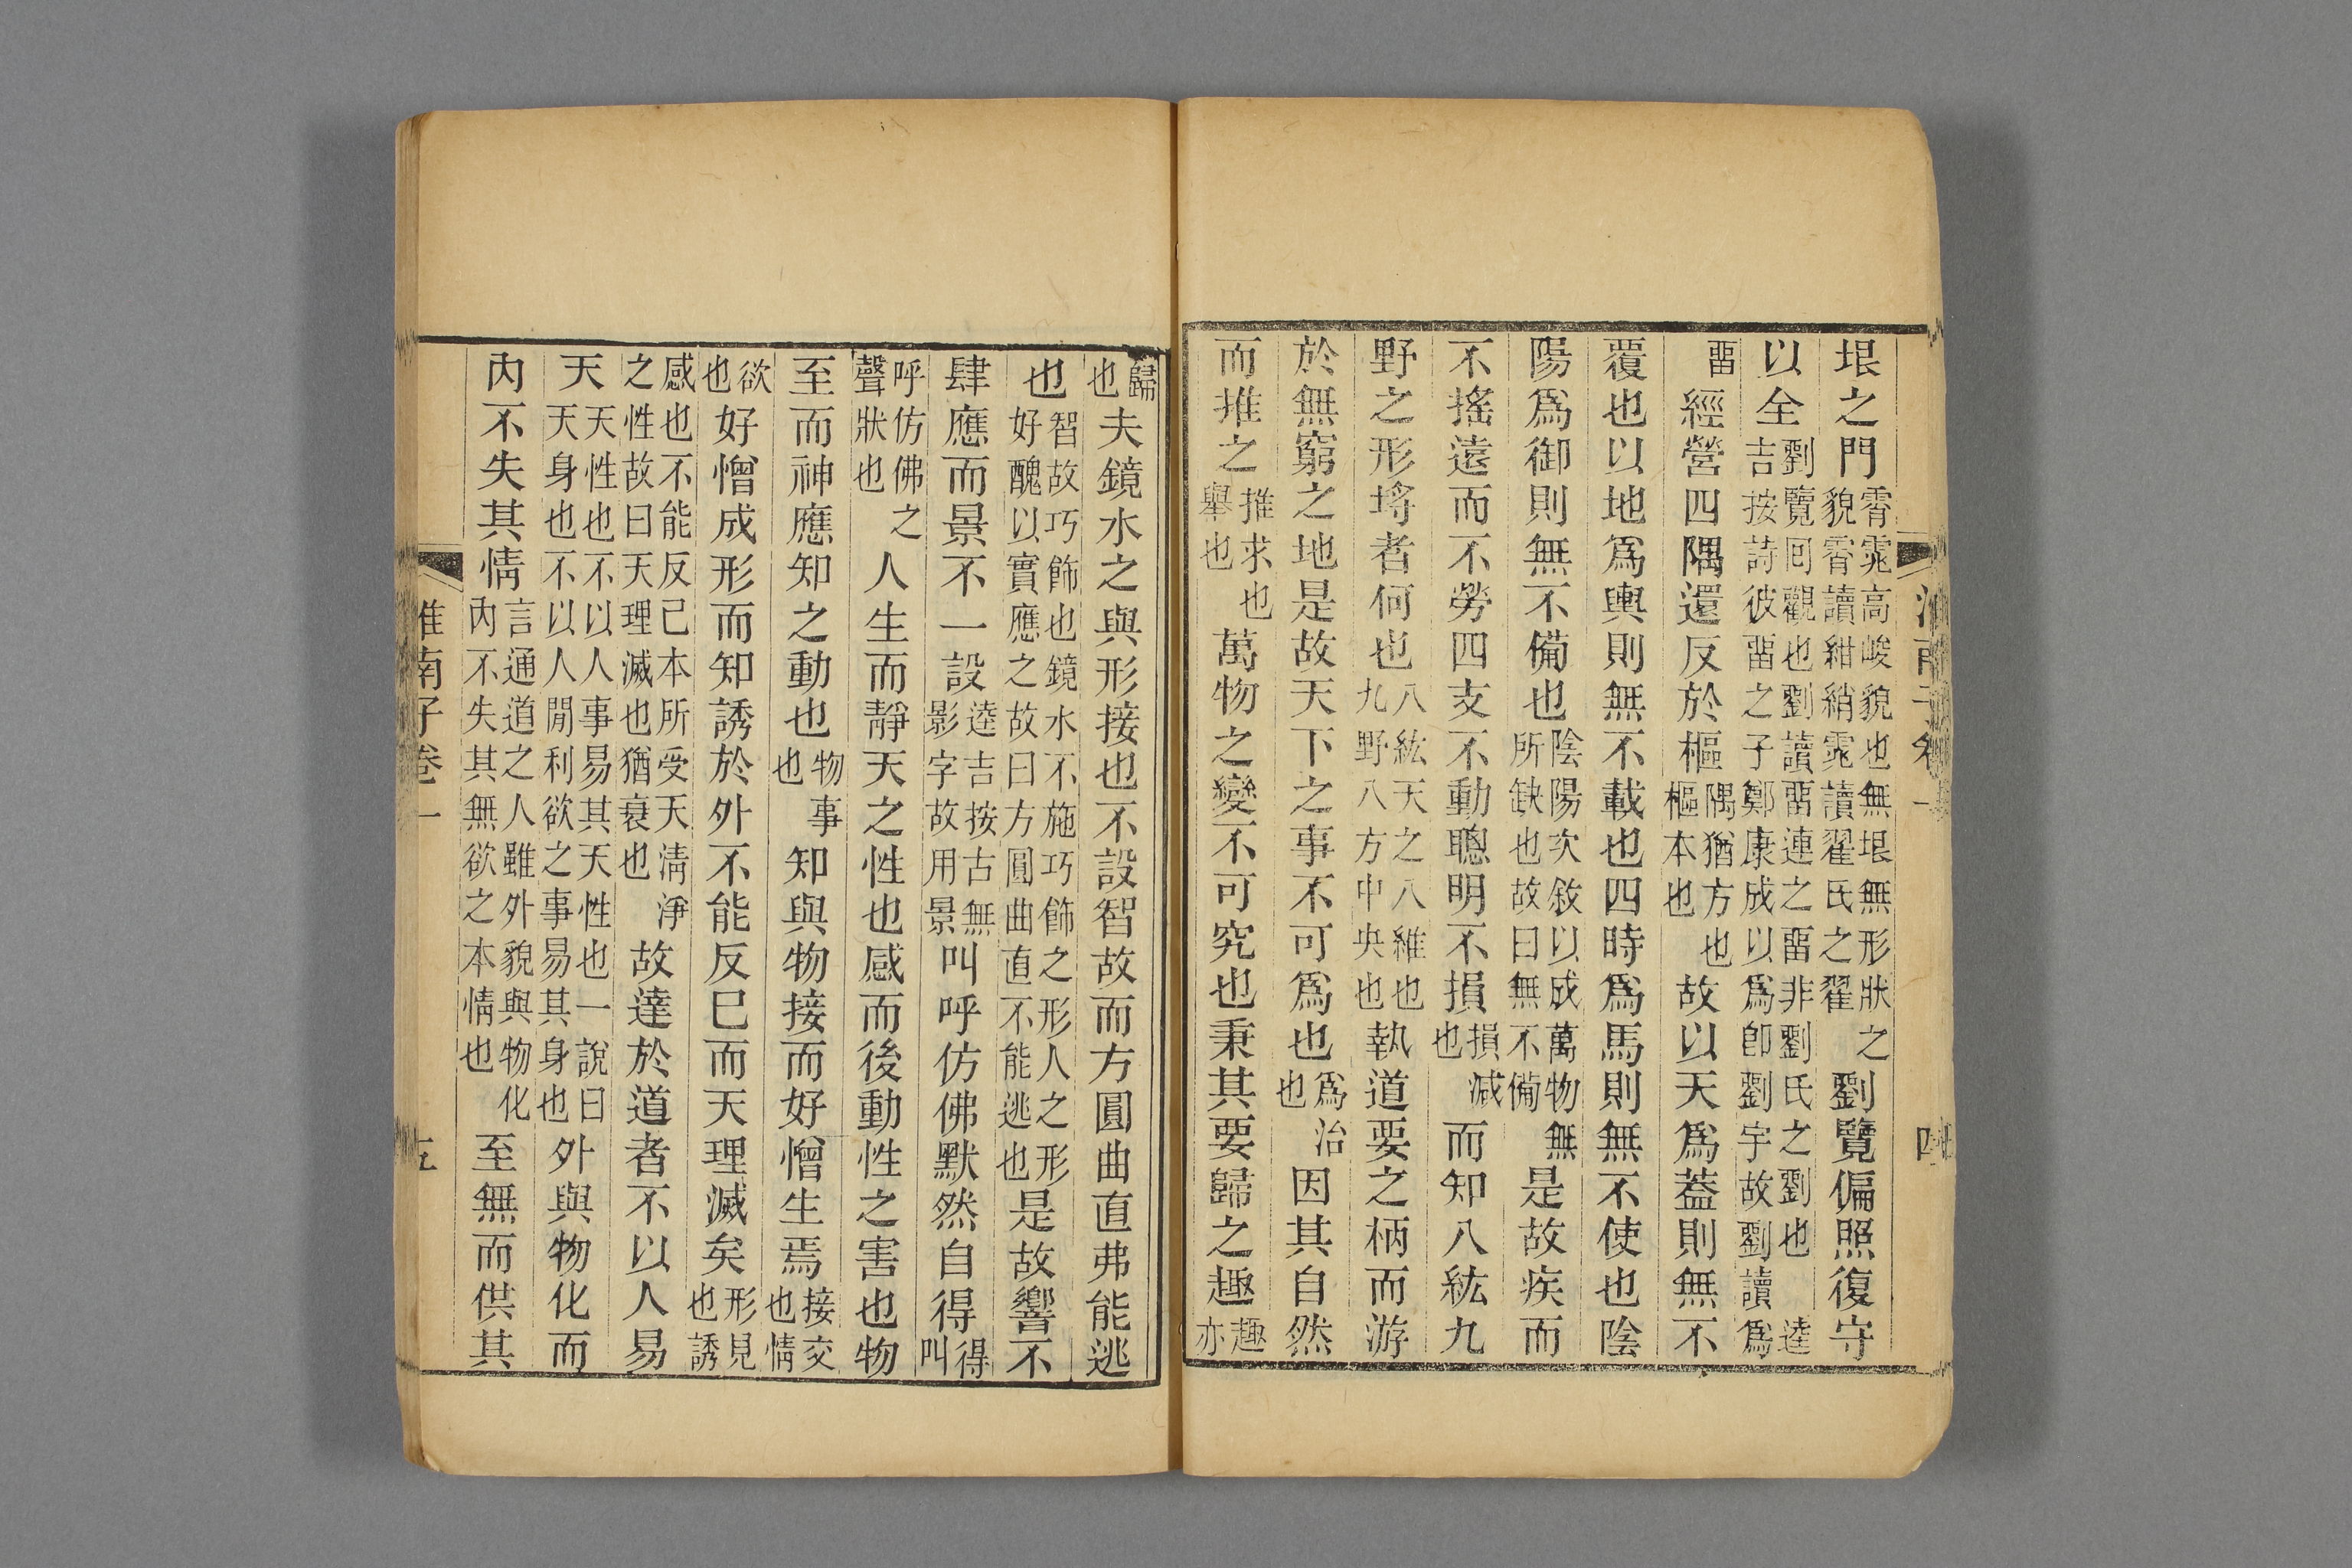 淮南子卷一 四
垠之門霄雿高峻貌也無垠無形狀之貌霄讀紺綃雿讀翟氏之翟劉覽偏照復守
以全劉覽回觀也劉讀畱連之畱非劉氏之劉也逵吉按詩彼畱之子鄭康成以爲卽劉字故劉讀爲
畱經營四隅還反於樞隅猶方也樞本也故以天爲蓋則無不
覆也以地爲輿則無不載也四時爲馬則無不使也陰
陽爲御則無不備也陰陽次敘以成萬物無所缺也故曰無不備是故疾而
不搖遠而不勞四支不動聰明不損損減也而知八紘九
野之形埒者何也八紘天之八維也九野八方中央也執道要之柄而游
於無窮之地是故天下之事不可爲也爲治也因其自然
而推之推求也舉也萬物之變不可究也秉其要歸之趣趣亦
歸也夫鏡水之與形接也不設智故而方圓曲直弗能逃
也智故巧飾也鏡水不施巧飾之形人之形好醜以實應之故曰方圓曲直不能逃也是故響不
肆應而景不一設逵吉按古無影字故用景叫呼仿佛默然自得得叫
呼仿佛之聲狀也人生而靜天之性也感而後動性之害也物
至而神應知之動也物事也知與物接而好憎生焉接交也情
欲也好憎成形而知誘於外不能反已而天理滅矣形見也誘
感也不能反已本所受天清淨之性故曰天理滅也猶衰也故達於道者不以人易
天天性也不以人事易其天性也一說曰天身也不以人閒利欲之事易其身也外與物化而
內不失其情言通道之人雖外貌與物化內不失其無欲之本情也至無而供其
淮南子卷一 五